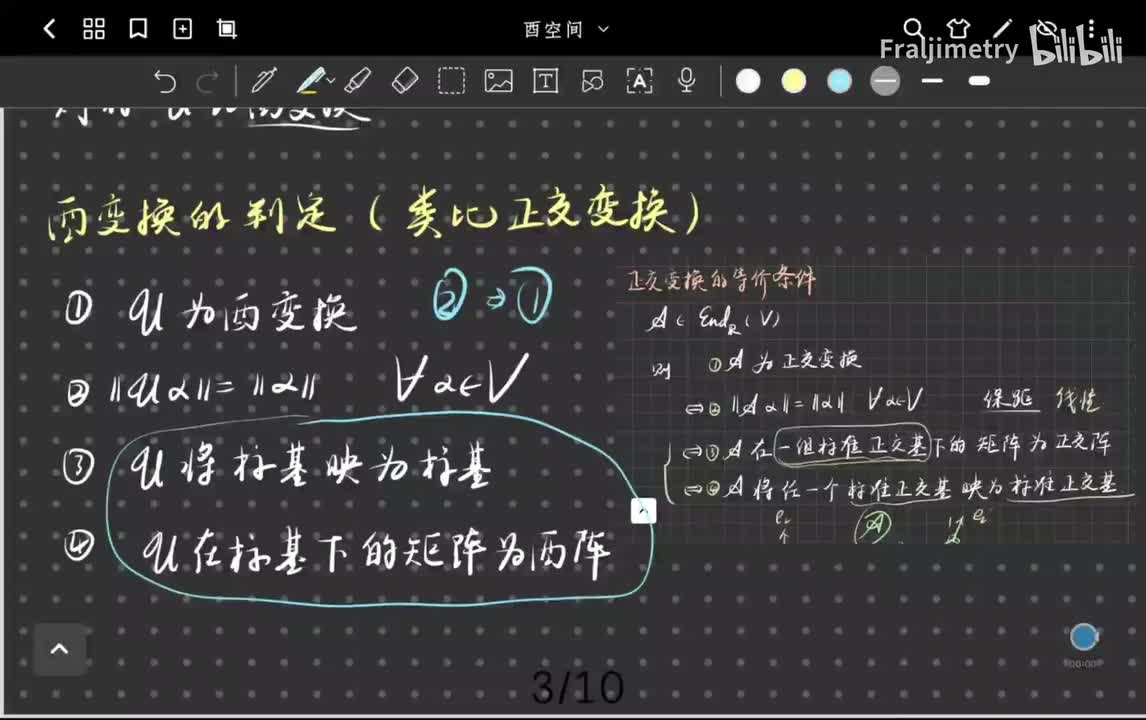 酉空间
Fraljimetry bilibili
则称 𝒰 为酉变换
酉变换的判定（类比正交变换）
① 𝒰 为酉变换 ② ⇒ ①
② ‖𝒰α‖=‖α‖ ∀α∈V
③ 𝒰 将标基映为标基
④ 𝒰 在标基下的矩阵为酉阵
正交变换的等价条件
𝒜 ∈ End_R(V)
则 ① 𝒜 为正交变换
⇔ ② ‖𝒜α‖=‖α‖ ∀α∈V 保距 线性
⇔ ③ 𝒜 在一组标准正交基下的矩阵为正交阵
⇔ ④ 𝒜 将任一个标准正交基映为标准正交基
𝒜
3/10
00:00